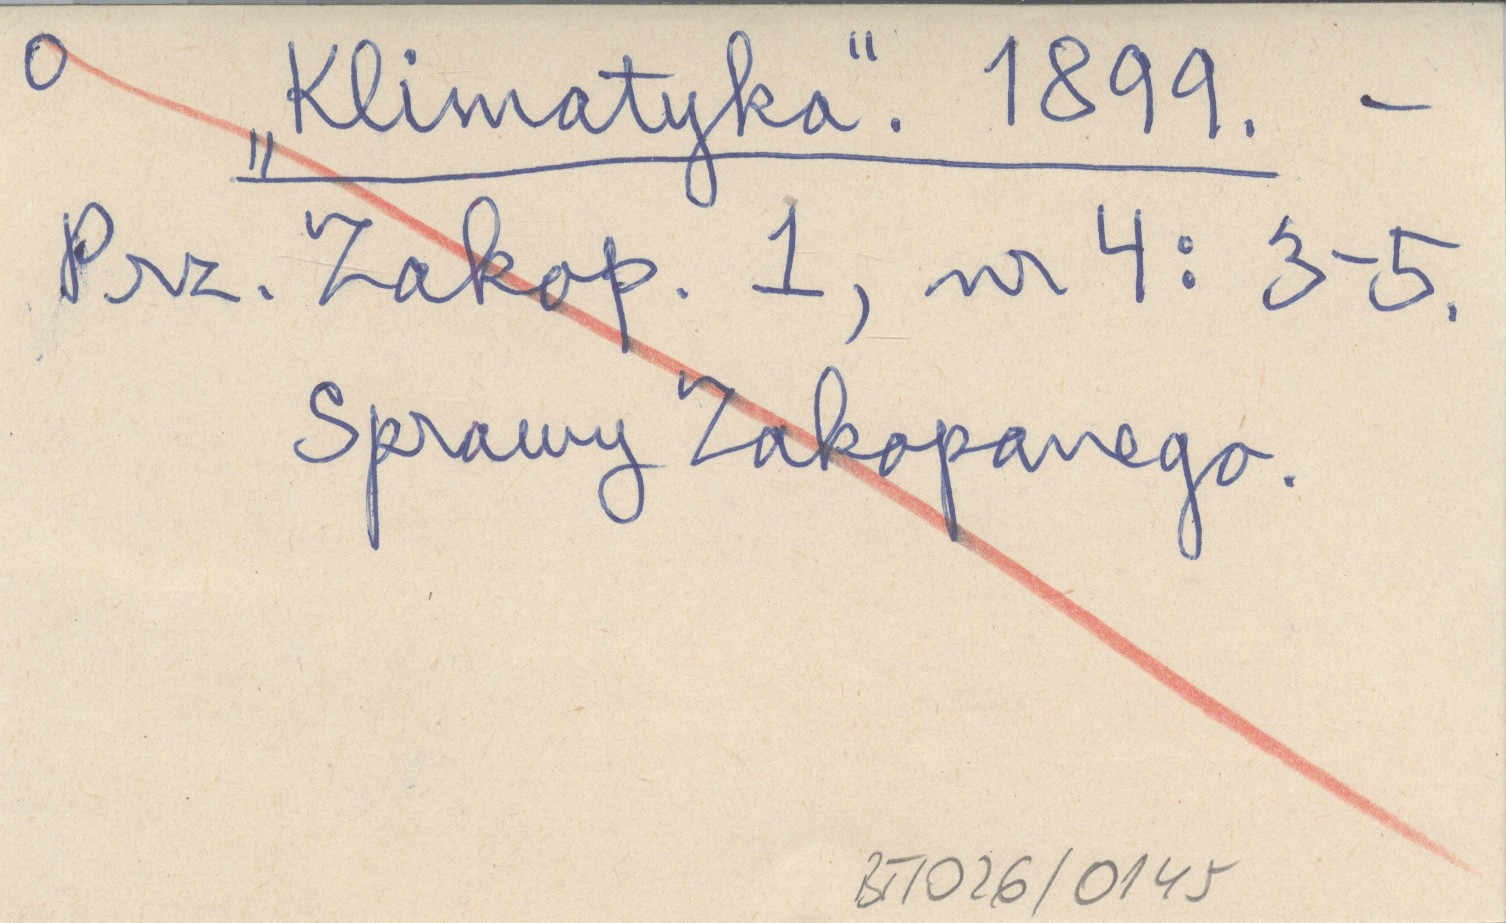 O „Klimatyka“. 1899. –
Prz. Zakop. 1, nr 4: 3-5.
Sprawy Zakopanego.
BTT026/0145